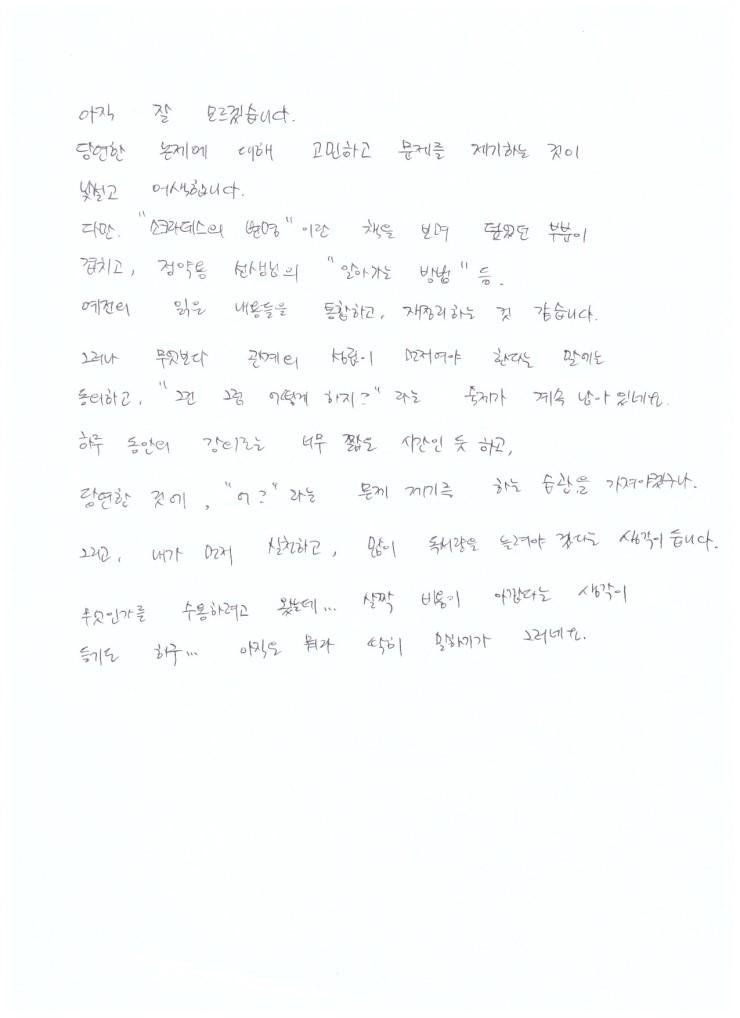 아직 잘 모르겠습니다.
당연한 논제에 대해 고민하고 문제를 제기하는 것이
낯설고 어색합니다.
다만. "소크라테스의 변명"이란 책을 보며 덮었던 부분이
겹치고, 정약용 선생님의 "알아가는 방법" 등.
예전의 읽은 내용들을 통합하고, 재정리하는 것 같습니다.
그러나 무엇보다 관계의 성립이 먼저여야 한다는 말에는
동의하고, "그럼 그럼 어떻게 하지?" 라는 숙제가 계속 남아 있네요.
하루 동안의 강의로는 너무 짧은 시간인 듯 하고,
당연한 것에, "어?" 라는 문제 제기를 하는 습관을 가져야겠구나.
그리고, 내가 먼저 실천하고, 많이 독서량을 늘려야 겠다는 생각이 듭니다.
무엇인가를 수용하려고 왔는데... 살짝 비용이 아깝다는 생각이
들기도 하구... 아직도 뭐라 딱히 말하기가 그러네요.